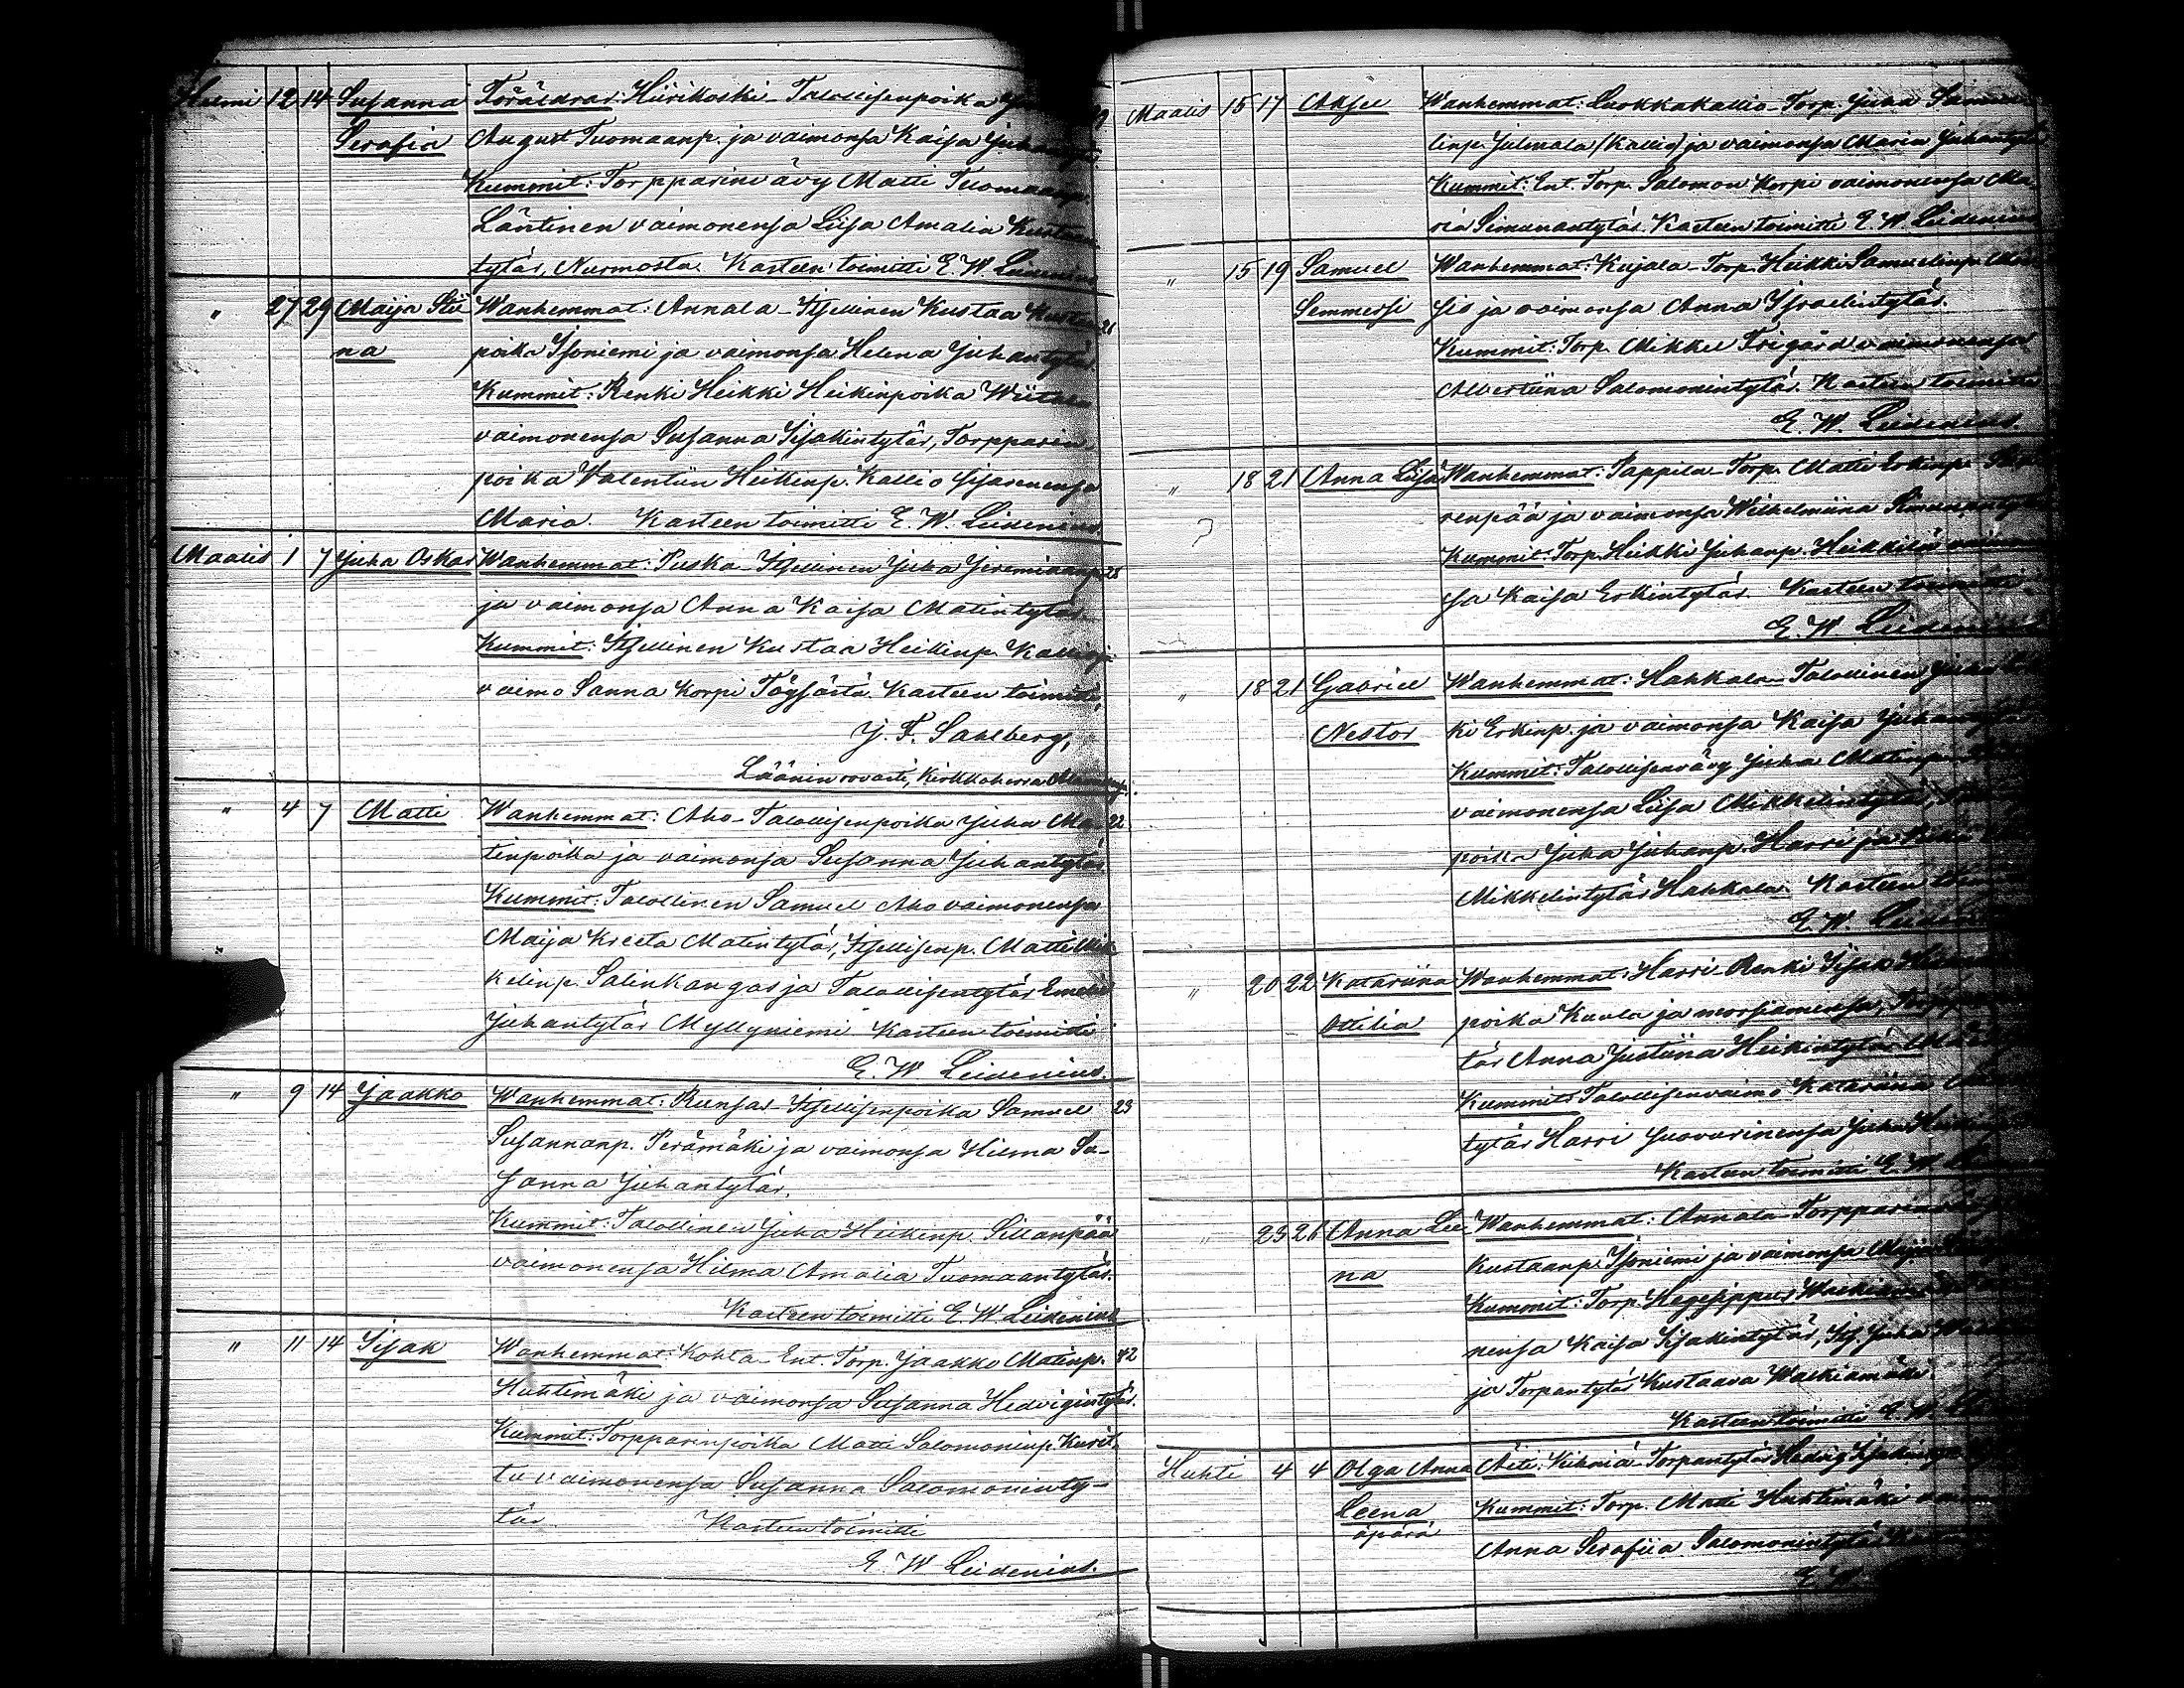 Helmi 12 14 Susanna Föräldrar: Hiirikoski - Talollisenpoika
Serafia August Tuomaanp. ja vaimonsa Kaisa Juhantytär.
Kummit: Torpparinvävy Matti Tuomaanp.
Läntinen vaimonensa Liisa Amalia Kustaan
tytär, Nurmosta. Kasteen toimitti E. W. Leidenius
" 27 29 Maija Stii Wanhemmat: Annala - Itsellinen Kustaa Kustaan 21
na poika Isoniemi ja vaimonsa Helena Juhantytär.
Kummit: Renki Heikki Heikinpoika Wiitala
vaimonensa Susanna Iisakintytär, Torpparin
poika Valentiin Heikinp. Kallio sisarenensa
Maria. Kasteen toimitti E. W. Leidenius.
Maalis 1 7 Juha Oskar Wanhemmat: Puska - Itsellinen Juha Jeremiaanp.
ja vaimonsa Anna Kaisa Matintytär.
Kummit: Itsellinen Kustaa Heikinp. Kallio ja
vaimo Sanna Korpi Töysästä. Kasteen toimitti,
J. F. Sahlberg,
Läänin rovasti, Kirkkoherra
" 4 7 Matti Wanhemmat: Aho - Talollisenpoika Juha Ma- 22
tinpoika ja vaimonsa Susanna Juhantytär
Kummit: Talollinen Samuel Aho vaimonensa
Maija Kreeta Matintytär, Itsellisenp. Matti Mik
kelinp. Salinkangas ja Talollisentytär
Juhantytär Myllyniemi Kasteen toimitti
E. W. Leidenius.
" 9 14 Jaakko Wanhemmat: Runsas - Itsellisenpoika Samuel 23
Susannanp. Perämäki ja vaimonsa Hilma Su-
sanna Juhantytär.
Kummit: Talollinen Juha Heikinp. Sillanpää
vaimonensa Hilma Amalia Tuomaantytär.
Kasteen toimitti E. W. Leidenius
" 11 14 Iisak Wanhemmat: Kohta - Ent. Torp. Jaakko Matinp. 42
Huhtimäki ja vaimonsa Susanna Hedvigintytär.
Kummit: Torpparinpoika Matti Salomoninp. Kurit
tu vaimonensa Susanna Salomoninty-
tär Kasteen toimitti
E. W. Leidenius.
Maalis 15 17 Aksel Wanhemmat: Luokkakallio - Torp. Juha Samue
linp. Julmala (Kallio) ja vaimonsa Maria Juhantytär
Kummit: Ent. Torp. Salomon Korpi vaimonensa Ma-
ria Simunantytär. Kasteen toimitti E. W. Leidenius
" 15 19 Samuel Wanhemmat: Kujala - Torp. Heikki Samuelinp.
Semmersi ja vaimonsa Anna Israelintytär.
Kummit: Torp. Mikkel Frigård vaimonensa
Albertiina Salomonintytär. Kasteen toimitti
E. W. Leidenius.
" 18 21 Anna Liisa Wanhemmat: Pappila - Torp. Matti Erkinp.
renpää ja vaimonsa Wilhelmiina
Kummit: Torp. Heikki Juhanp. Heikkilä
sa Kaisa Erkintytär. Kasteen toimitti
E. W. Leidenius
" 18 21 Gabriel Wanhemmat: Hahkala - Talollinen Juha
Nestor ki Erkinp. ja vaimonsa Kaisa Juhantytär
Kummit: Talollisenvävy Juha Matinp.
vaimonensa Liisa Mikkelintytär,
poika Juha Juhanp. Harri ja
Mikkelintytär Hahkala. Kasteen toimitti
E. W. Leidenius
" 20 22 Katariina Wanhemmat: Harri - Renki Iisak
Ottilia poika Kuula ja morsiamensa,
tär Anna Justiina Heikintytär
Kummit: Talollisenvaimo Katariina
tytär Harri Juha
Kasteen toimitti E. W.
" 23 26 Anna Lee- Wanhemmat: Annala -
na Kustaanp. Isoniemi ja vaimonsa Maija
Kummit: Torp. Hegesippus
nensa Kaisa Iisakintytär, Its. Juha
ja Torpantytär Kustaava Waskiamäki
Kasteen toimitti E. W.
Huhti 4 4 Olga Anna Äiti: Kihniä - Torpantytär Hedvig
Leena Kummit: Torp. Matti Huhtimäki
äpärä Anna Serafiia Salomonintytär
E. W.